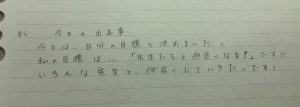 今日の出来事
今日は、自分の目標を決めました。
私の目標は…「先生たちと仲良くなる!」です!!
いろんな先生と、仲良くしていきたいです!